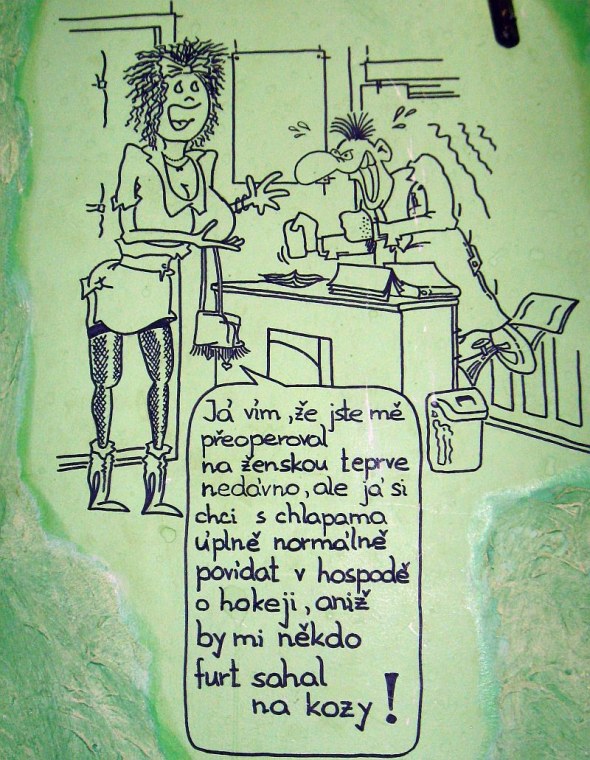 Já vím, že jste mě
přeoperoval
na ženskou teprve
nedávno, ale já si
chci s chlapama
úplně normálně
povídat v hospodě
o hokeji, aniž
by mi někdo
furt sahal
na kozy!